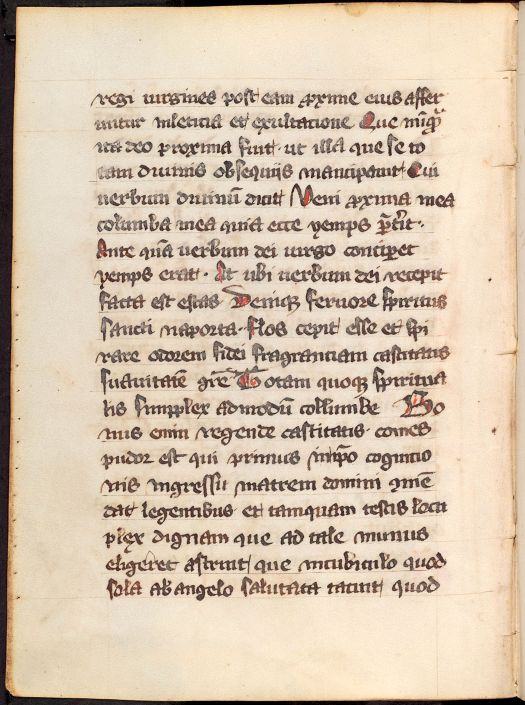 regi uirgines post eam ꝓxime eius affer
untur in leticia et exultatione Que nūꝙ̄
ita deo proxima fuit ut illa que se to
tam diuinis obsequiis mancipauit Cui
uerbum diuinū dicit Veni ꝓxima mea
columba mea quia ecce yemps p̄t̄it
Ante qm̄ uerbum dei uirgo conciperet
yemps erat At ubi uerbum dei recepit
facta est estas Deniqꝫ feruore spiritus
sancti naporta flos cepit esse et spi
rare odorem fidei fragrantiam castitatis
suauitatē gr̄e Totam quoqꝫ spiritua
lis simplex admodū collumbe Bo
nus enim regende castitatis comes
pudor est qui primus in ip̄o cognitio
nis ingressu matrem domini
dat legentibus et tamquam testis locu
plex dignam que ad tale munus
eligeret astruit que in cubiculo quod
sola ab angelo salutata tacuit quod